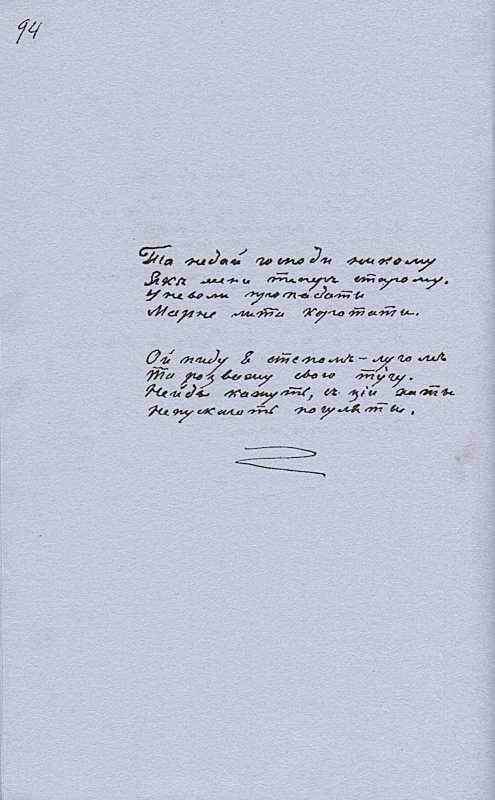 94
Та недай господи никому
Якъ мени теперъ старому.
У неволи пропадаты
Марне лита коротати.
Ой пиду я степомъ-лугомъ
Та розважу свою тугу.
Нейды кажуть, съ ций хаты
Непускають погуляты.